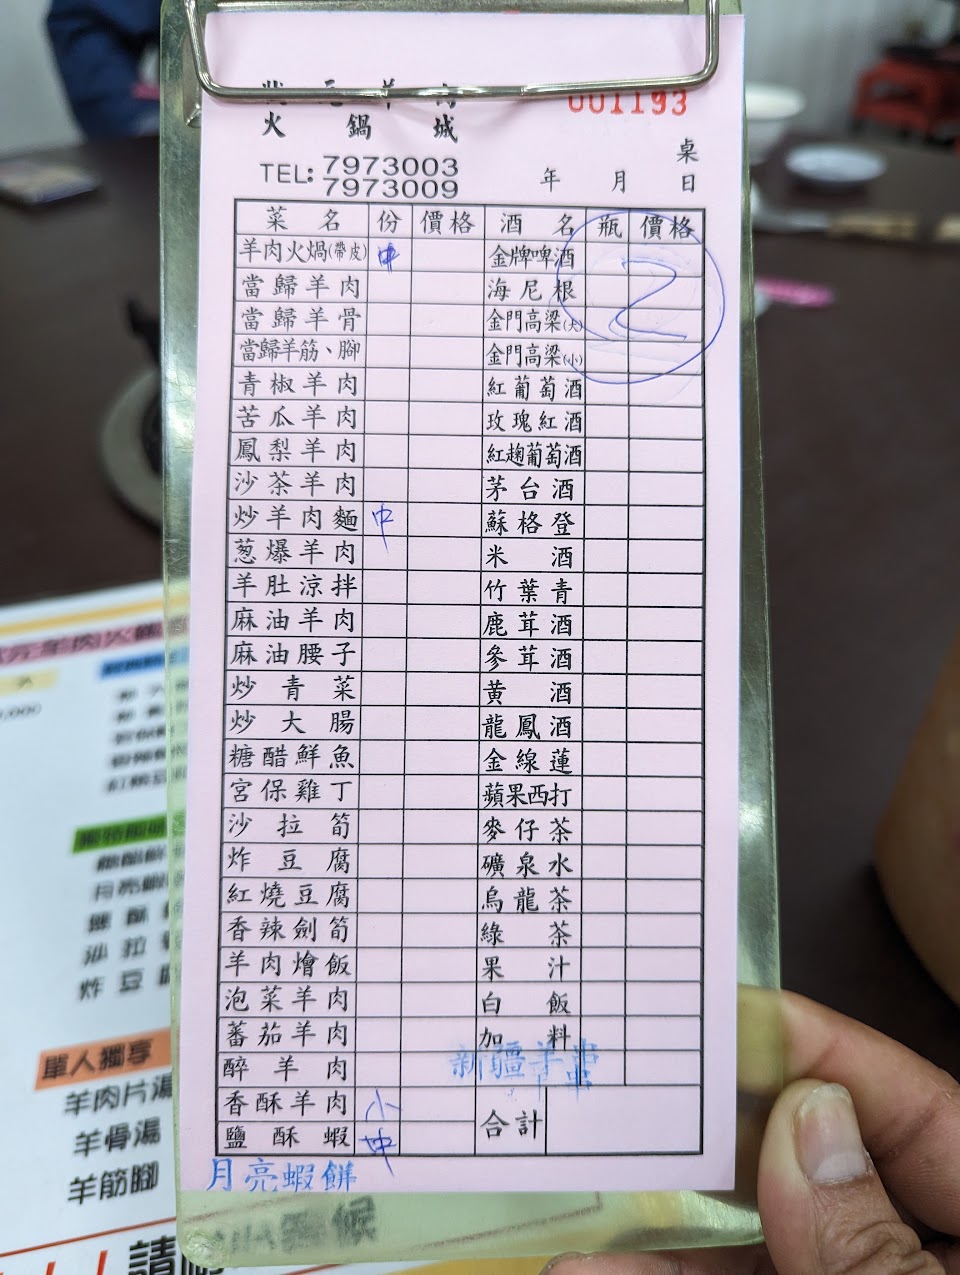 狀元羊肉
火鍋城
001193
TEL: 7973003
7973009
桌
年 月 日
菜名 份 價格 酒名 瓶 價格
羊肉火煱(帶皮) 中 金牌啤酒
2
當歸羊肉 海尼根
當歸羊骨 金門高粱(大)
當歸羊筋、腳 金門高粱(小)
青椒羊肉 紅葡萄酒
苦瓜羊肉 玫瑰紅酒
鳳梨羊肉 紅趜葡萄酒
沙茶羊肉 茅台酒
炒羊肉麵 中 蘇格登
葱爆羊肉 米酒
羊肚涼拌 竹葉青
麻油羊肉 鹿茸酒
麻油腰子 參茸酒
炒青菜 黃酒
炒大腸 龍鳳酒
糖醋鮮魚 金線蓮
宮保雞丁 蘋果西打
沙拉筍 麥仔茶
炸豆腐 礦泉水
紅燒豆腐 烏龍茶
香辣劍筍 綠茶
羊肉燴飯 果汁
泡菜羊肉 白飯
蕃茄羊肉 加料
醉羊肉 新疆羊串
香酥羊肉 小 合計
鹽酥蝦 中
月亮蝦餅
單人獨享
羊肉片湯
羊骨湯
羊筋腳
請